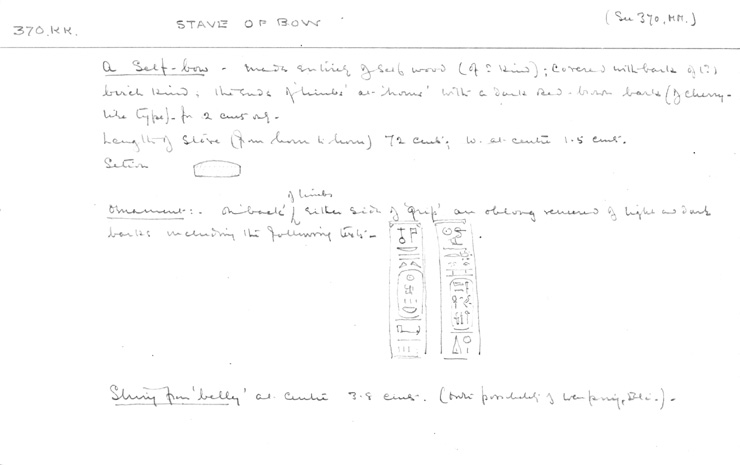 370.HH.
STAVE OF BOW
(See 370, MM.)
A Self-bow - made entirely of self wood (of ? kind); covered with bark of (?)
birch kind; the ends of limbs at 'horns' with a dark red-brown bark (of cherry-
like type) - for 2 cms
Length of stave (from horn to horn) 72 cent; W. at centre 1.5 cent.
Section
of limbs
Ornament:- On 'back' either side of 'grip' an oblong veneered of light and dark
barks including the following texts -
String from 'belly' at centre 3.8 cent. (note possibility of warping, etc.) -